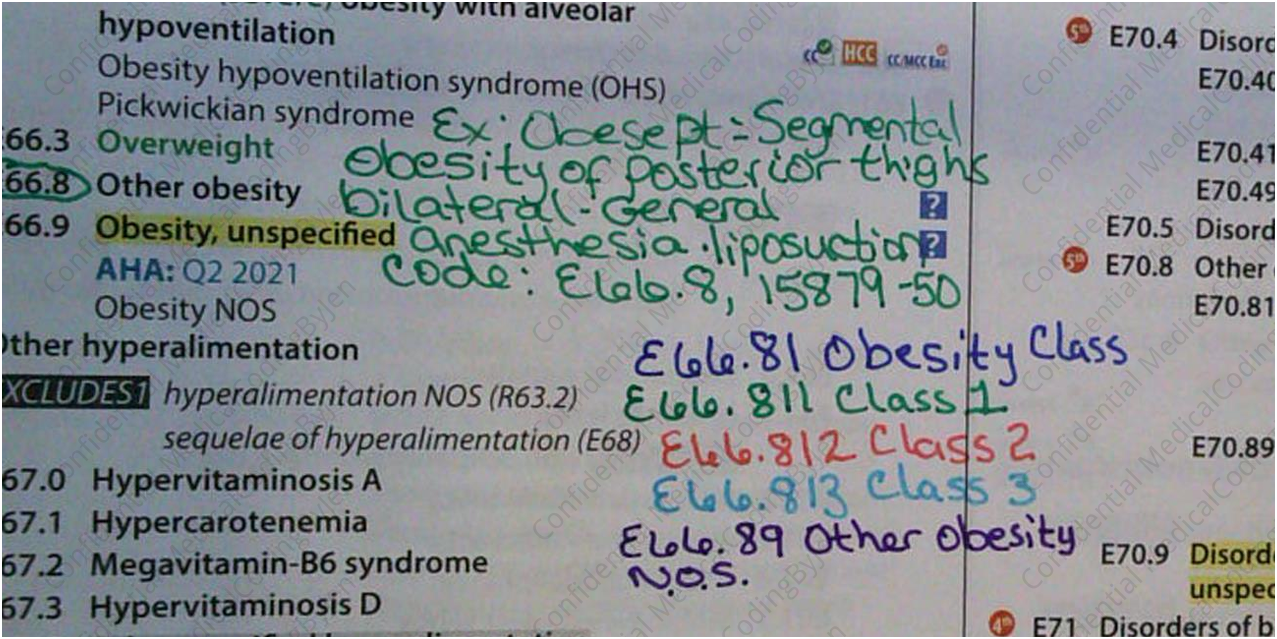 obesity with alveolar
hypoventilation
CC HCC CC/MCC Exc
Obesity hypoventilation syndrome (OHS)
Pickwickian syndrome
Ex: Obese pt = Segmental
66.3 Overweight
obesity of posterior thighs
66.8 Other obesity
bilateral - General
?
66.9 Obesity, unspecified
anesthesia · liposuction
?
AHA: Q2 2021
Code: E66.8, 15879-50
Obesity NOS
Other hyperalimentation
E66.81 Obesity Class
EXCLUDES1 hyperalimentation NOS (R63.2)
E66.811 Class 1
sequelae of hyperalimentation (E68)
E66.812 Class 2
67.0 Hypervitaminosis A
E66.813 Class 3
67.1 Hypercarotenemia
E66.89 Other obesity
N.O.S.
67.2 Megavitamin-B6 syndrome
67.3 Hypervitaminosis D
5th E70.4 Disord
E70.40
E70.41
E70.49
E70.5 Disord
5th E70.8 Other
E70.81
E70.89
E70.9 Disord
unspec
4th E71 Disorders of b
Confidential MedicalCodingByJen